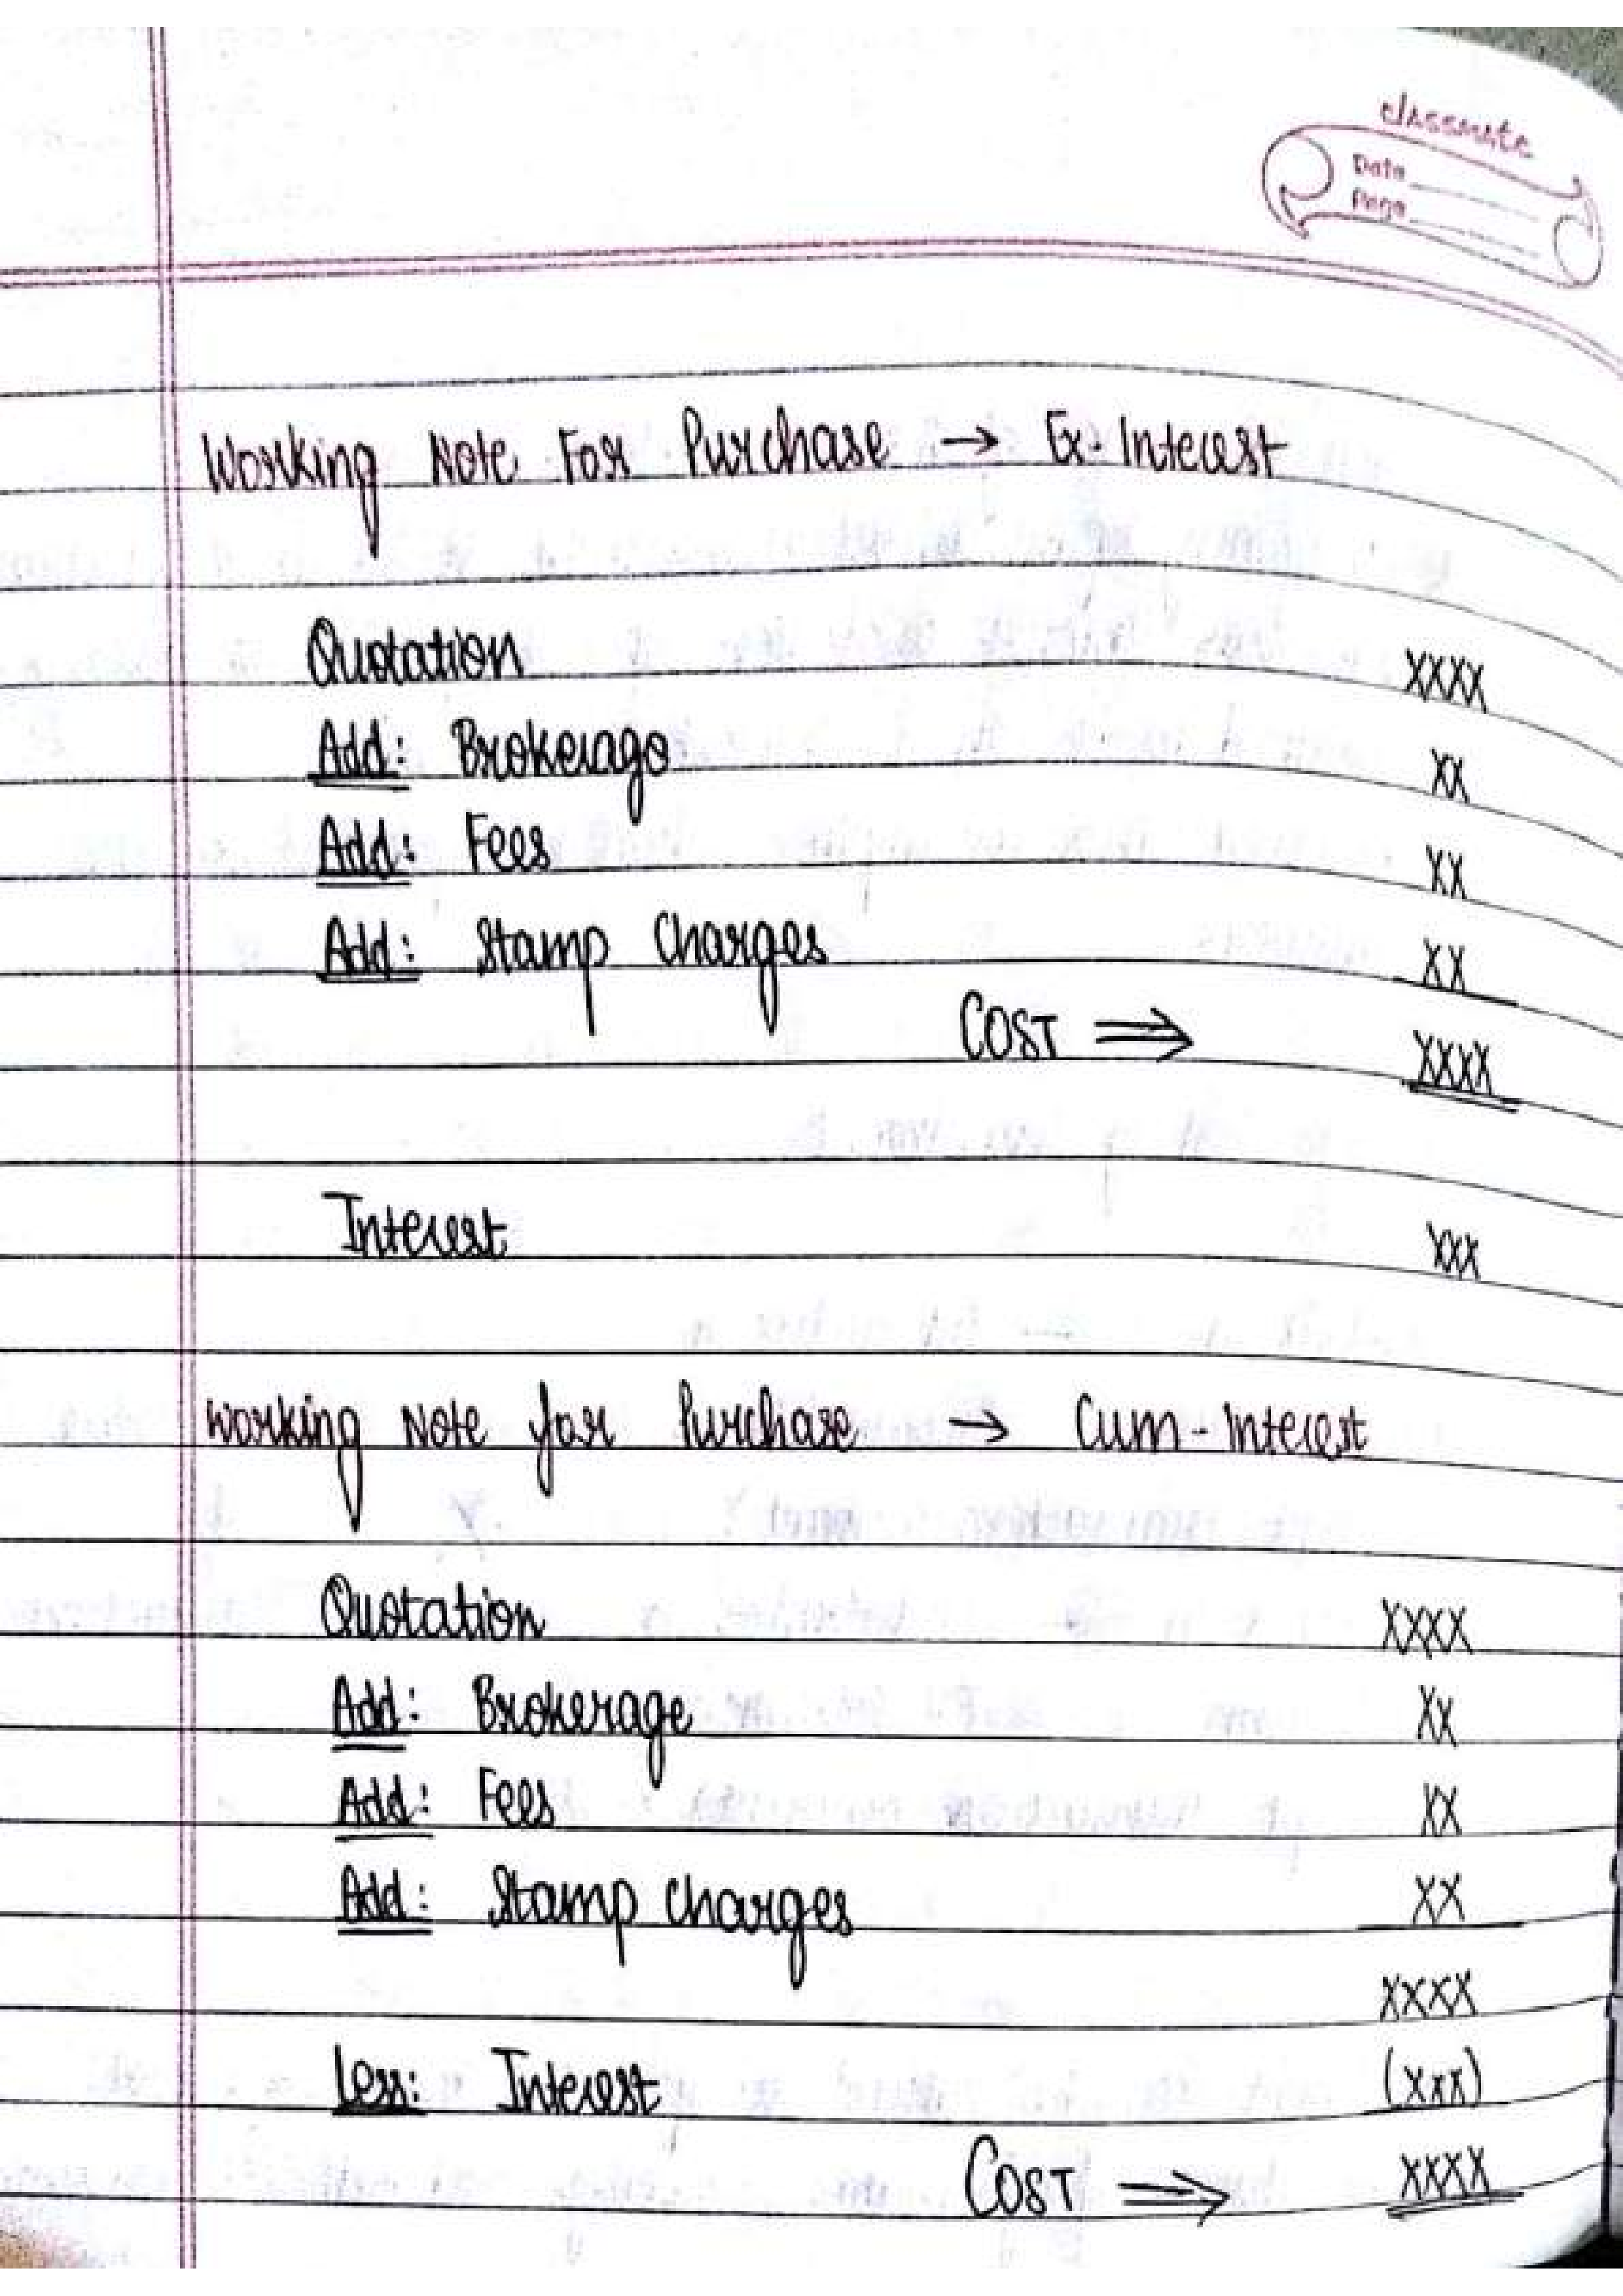 classmate
Date
Page
Working Note For Purchase → Ex-Interest
Quotation XXXX
Add: Brokerage XX
Add: Fees XX
Add: Stamp Charges XX
COST ⇒ XXXX
Interest XXX
Working Note for Purchase → Cum-Interest
Quotation XXXX
Add: Brokerage XX
Add: Fees XX
Add: Stamp Charges XX
XXXX
Less: Interest (XXX)
COST ⇒ XXXX